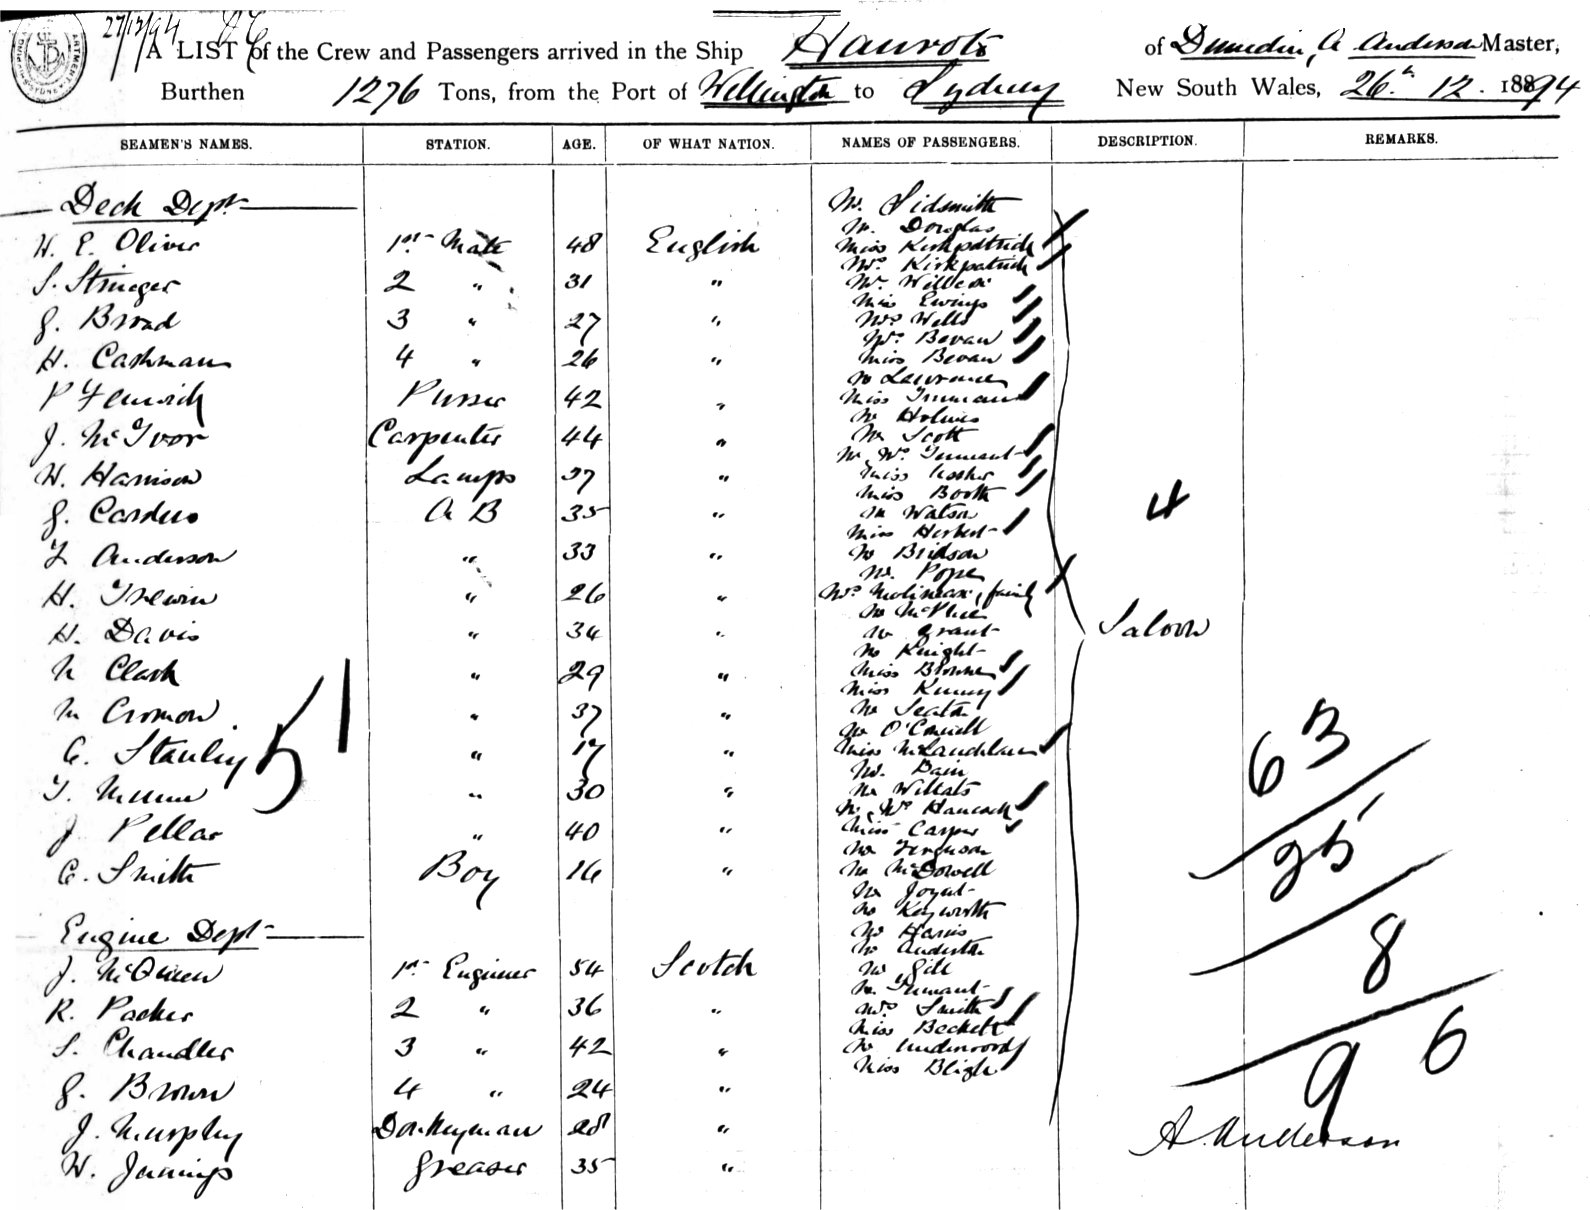 27/12/94
A LIST of the Crew and Passengers arrived in the Ship Hauroto of Dunedin, A Anderson Master,
Burthen 1276 Tons, from the Port of Wellington to Sydney New South Wales, 26th 12. 1894
SEAMEN'S NAMES. STATION. AGE. OF WHAT NATION. NAMES OF PASSENGERS. DESCRIPTION. REMARKS.
Deck Dept
H. E. Oliver 1st Mate 48 English
S. Stringer 2 " 31 "
G. Broad 3 " 27 "
H. Cashman 4 " 26 "
P Fenwick Purser 42 "
J. McIvor Carpenter 44 "
W. Harrison Lamps 37 "
G. Cardus A B 35 "
F Anderson " 33 "
H. Trewin " 26 "
H. Davis " 34 "
N Clark " 29 "
M Cromow " 37 "
C. Stanley " 17 "
T. " 30 "
J Pellar " 40 "
C. Smith Boy 16 "
Engine Dept
J. McQueen 1st Engineer 54 Scotch
R. Packer 2 " 36 "
S. Chandler 3 " 42 "
G. Brown 4 " 24 "
J. Murphy Donkeyman 28 "
W. Jennings Greaser 35 "
51
Mr. Sidsmith
Mr. Douglas
Miss Kirkpatrick
Mrs. Kirkpatrick
Mr. Willcox
Miss Ewings
Mrs Wells
Mrs. Bevan
Miss Bevan
Mr Lawrence
Miss
Mr Holmes
Mr Scott
Mr Mrs Tennant
Miss Ussher
Miss Booth
Mr Watson
Miss Herbert
Mr Bridson
Mr. Pope
Mrs Molineax, family
Mr McPhee
Mr Grant
Mr Knight
Miss Browne
Miss Kenny
Mr Seaton
Mr O'Connell
Miss McLauchlan
Mr. Bain
Mr Willats
Mr Mrs Hancock
Miss Casper
Mr Ferguson
Mr McDowell
Mr Joyat
Mr Keyworth
Mr Harris
Mr
Mr Gill
Mr Tennant
Mrs Smith
Miss Beckett
Mr Underwood
Miss Bligh
4
Saloon
63
25
8
96
A. Anderson